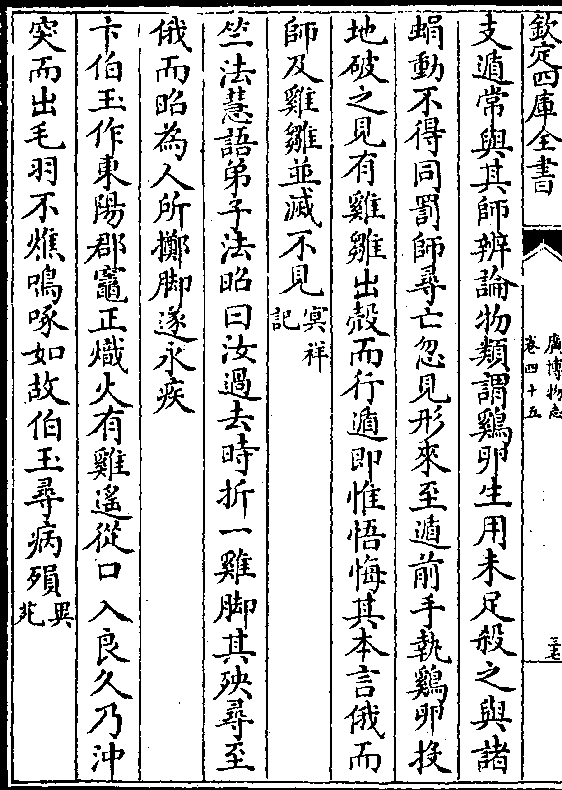 欽定四庫全書
廣博物志
卷四十五
三七
支遁常與其師辨論物類謂鷄卵生用未足殺之與諸
蜎動不得同罰師尋亡忽見形來至遁前手執鷄卵投
地破之見有雞雛出殻而行遁即惟悟悔其本言俄而
師及雞雛並滅不見冥祥
記
竺法慧語弟子法昭曰汝過去時折一雞脚其殃尋至
俄而昭為人所擲脚遂永疾
卞伯玉作東陽郡竈正熾火有雞遙從口入良久乃沖
突而出毛羽不燋鳴啄如故伯玉尋病殞異
苑